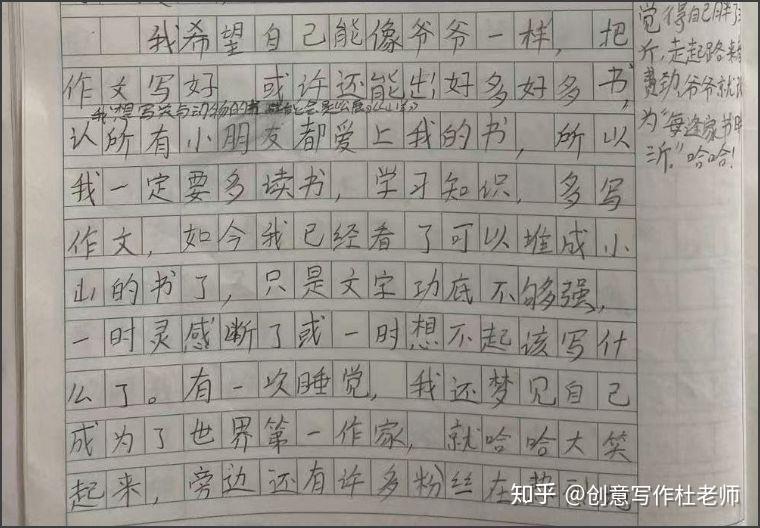 我希望自己能像爷爷一样，把
作文写好，或许还能出好多好多书，
认所有小朋友都爱上我的书，所以
我一定要多读书，学习知识，多写
作文，如今我已经看了可以堆成小
山的书了，只是文字功底不够强，
一时灵感断了或一时想不起该写什
么了。有一次睡觉，我还梦见自己
成为了世界第一作家，就哈哈大笑
起来，旁边还有许多粉丝在
觉得自己胖了
斤，走起路来
费劲，爷爷就
为“每逢家书
三斤。”哈哈！
知乎 @创意写作杜老师